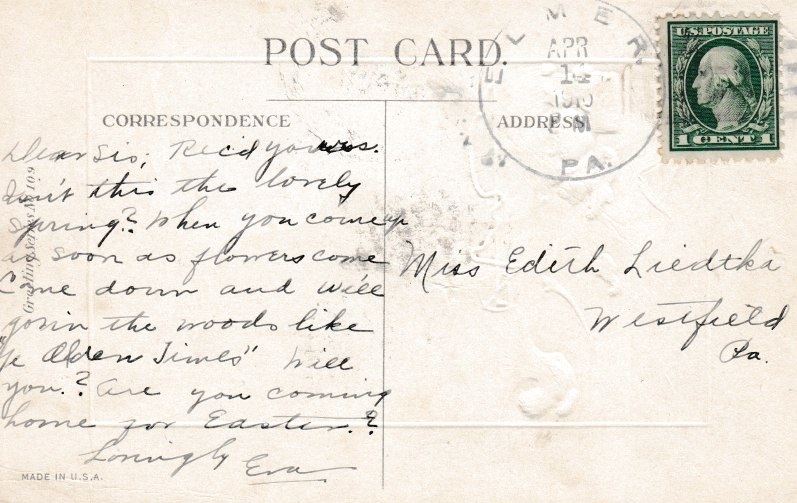 POST CARD.
ELMER
APR
14
PA.
U.S. POSTAGE
1 CENT 1
CORRESPONDENCE
ADDRESS
Dear Sis, Rec'd yours.
Isn't this the lovely
Spring? When you come up
as soon as flowers come
Come down and will
go in the woods like
"Ye Olden Times" Will
you? Are you coming
home for Easter?
Lovingly Eva
Miss Edith Liedtka
Westfield
Pa.
MADE IN U.S.A.